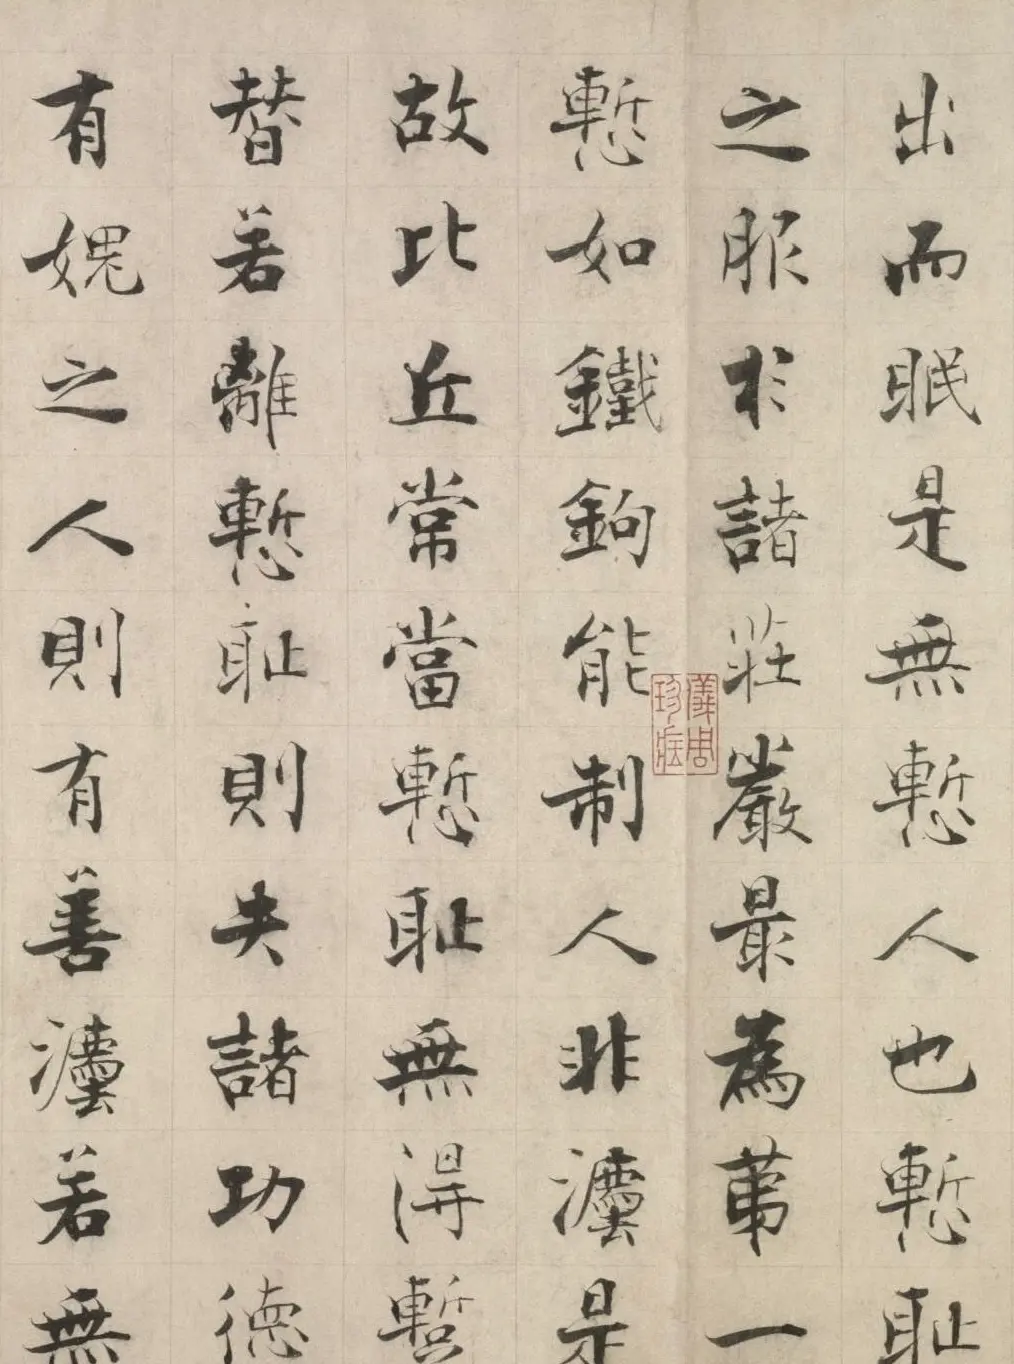 出而眠是無慙人也慙耻
之服於諸莊嚴最為第一
慙如鐵鉤能制人非灋是
故比丘常當慙耻無得暫
替若離慙耻則失諸功德
有媿之人則有善灋若無
儀周珍藏